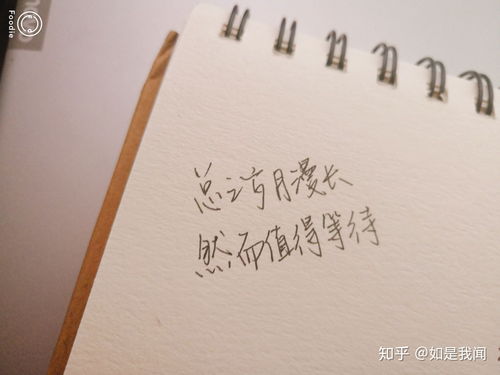 Foodie
总之岁月漫长
然而值得等待
知乎 @如是我闻